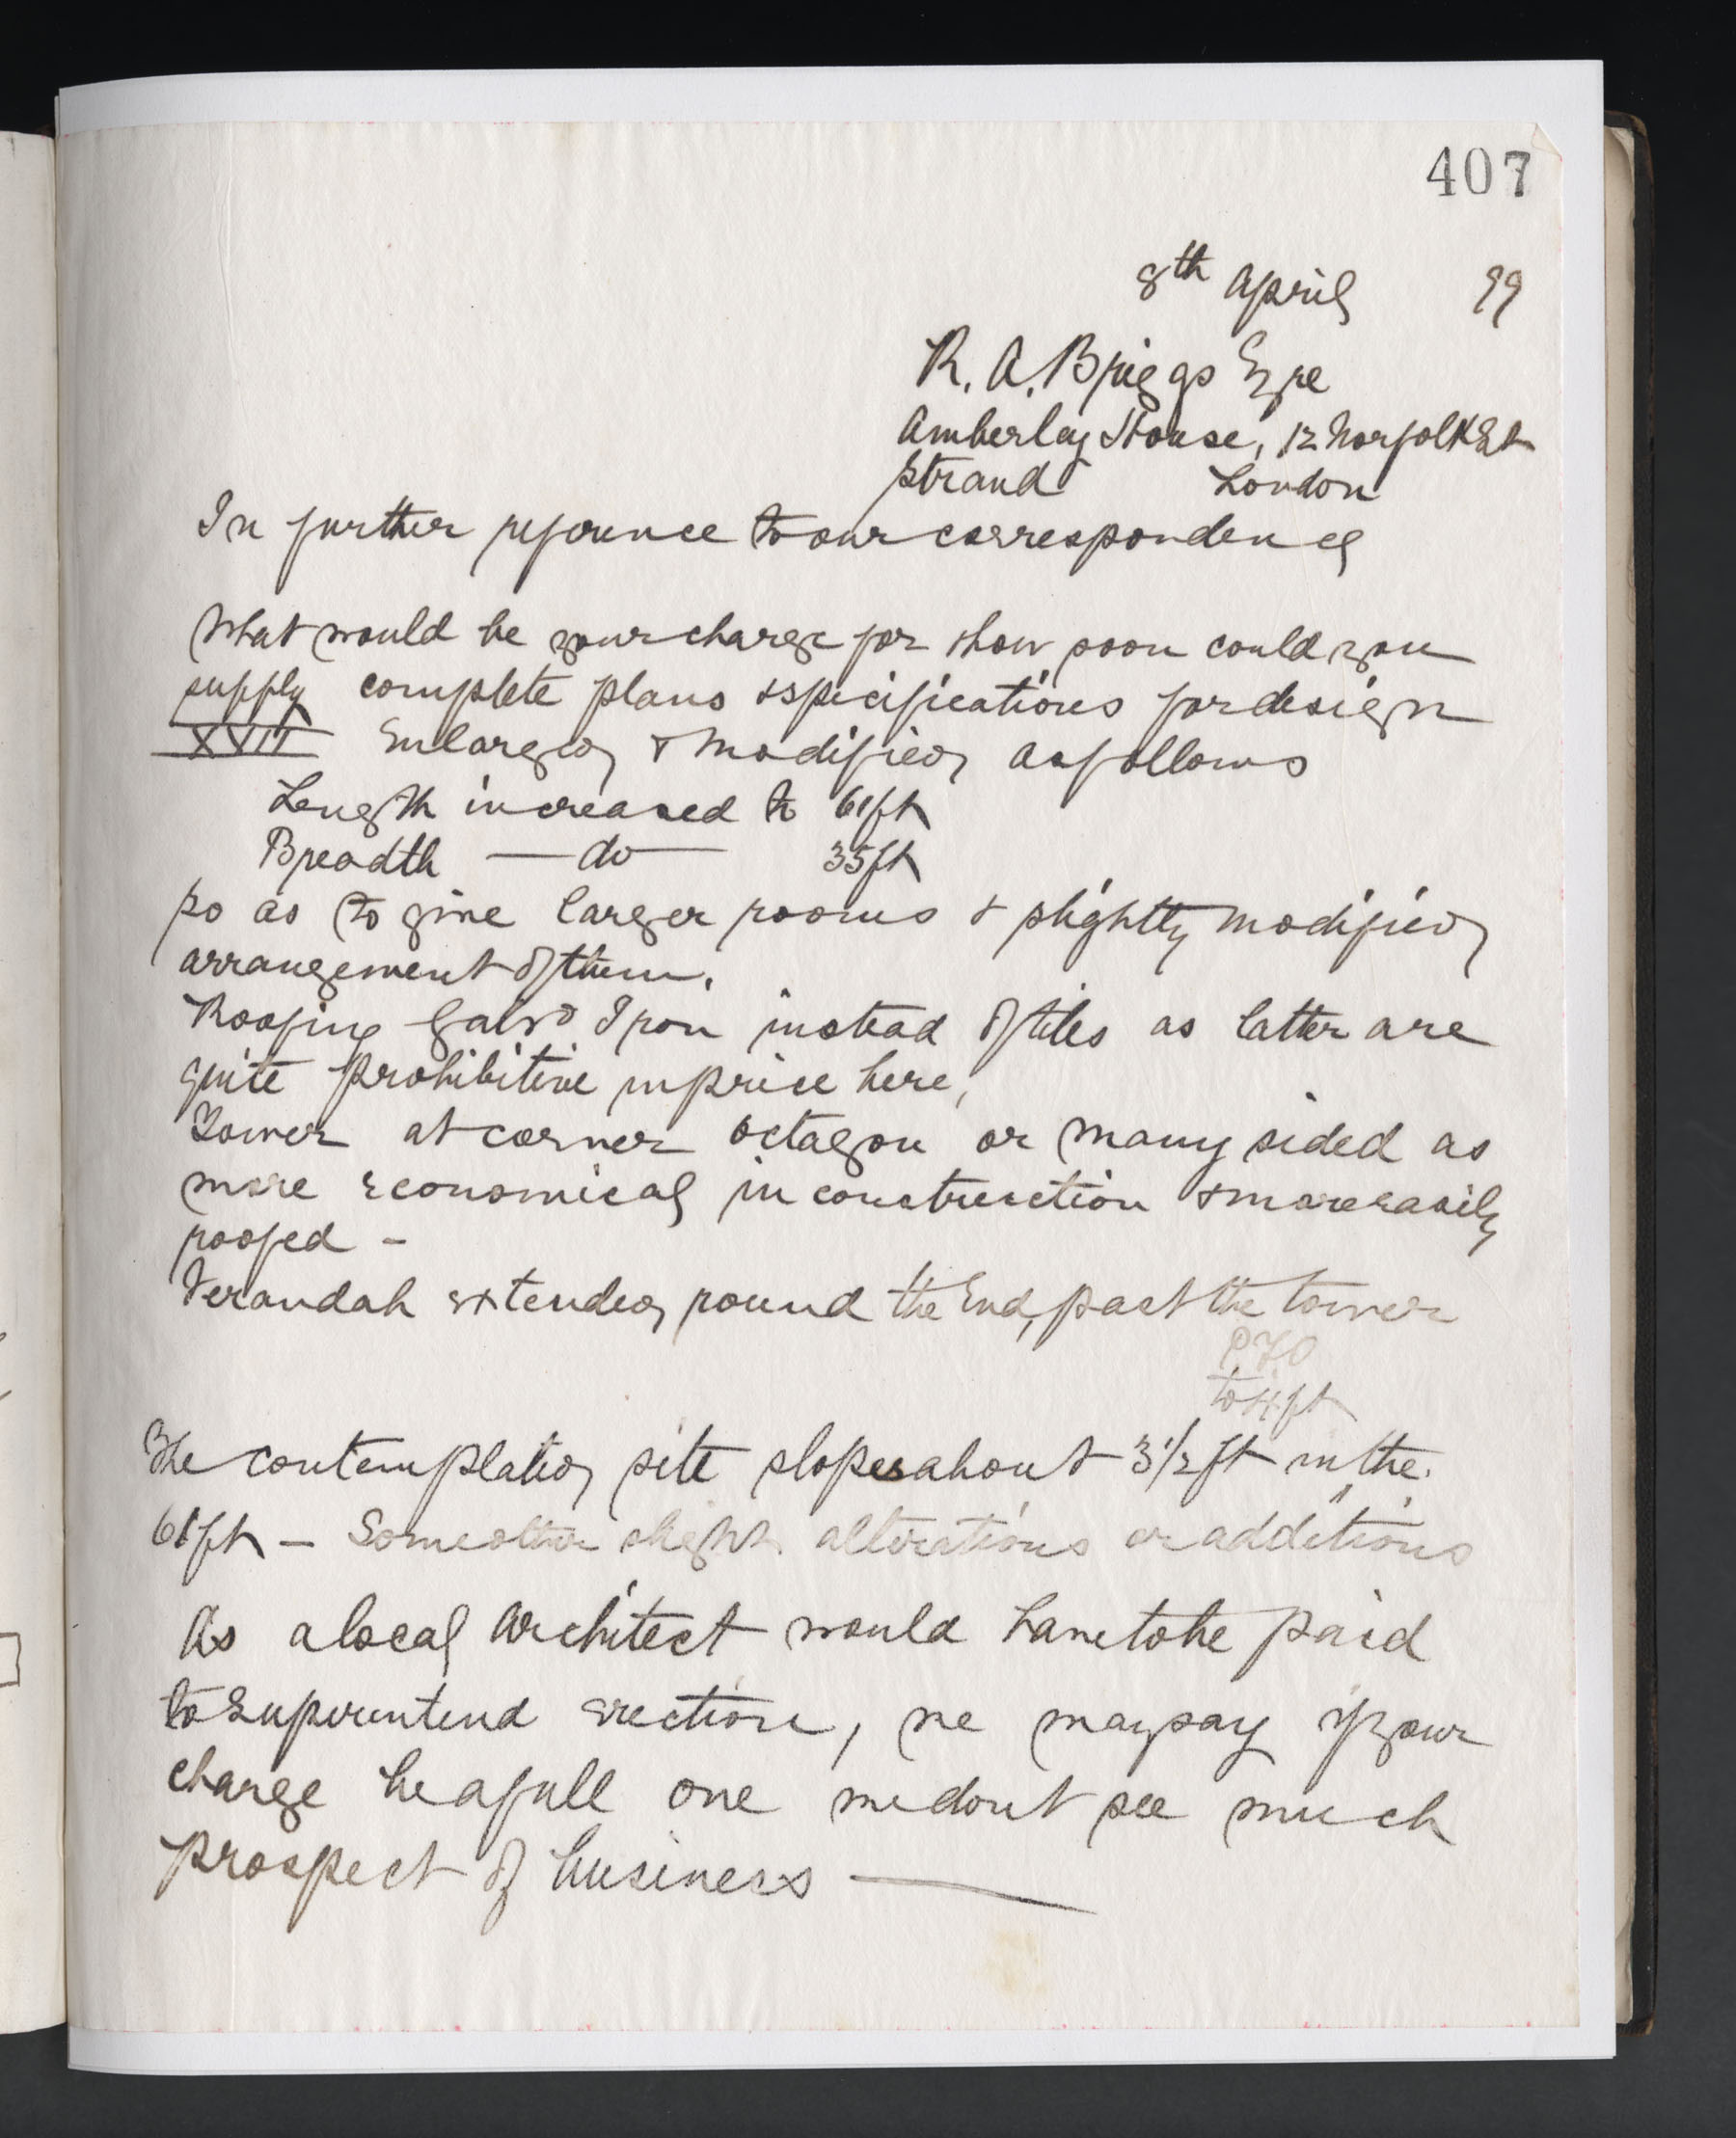 407
8th April 99
R. A. Briggs Esqre
Amberley House, 12 Norfolk St
Strand London
In further reference to our correspondence
What would be your charge for & how soon could you
supply complete plans & specifications for design
XVII Enlarged & Modified as follows
Length increased to 61ft
Breadth — do — 35ft
so as to give larger rooms & slightly modified
arrangement of them.
Roofing Galvd Iron instead of tiles as latter are
quite prohibitive in price here,
Tower at corner octagon or many sided as
more economical in construction & more easily
roofed -
Verandah extended round the End, past the tower
PTO
to 4ft
The contemplated site slopes about 3½ft in the
61ft — Some other slight alterations or additions
As a local Architect would have to be paid
to Superintend erection, we may say if your
charge be a full one we dont see much
prospect of business —